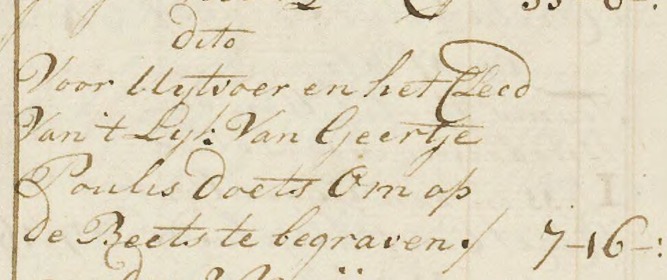 dito
Voor Uytvoer en het Cleed
Van't Lyk Van Geertje
Poulus Doets Om op
de Beets te begraven 7-16-: